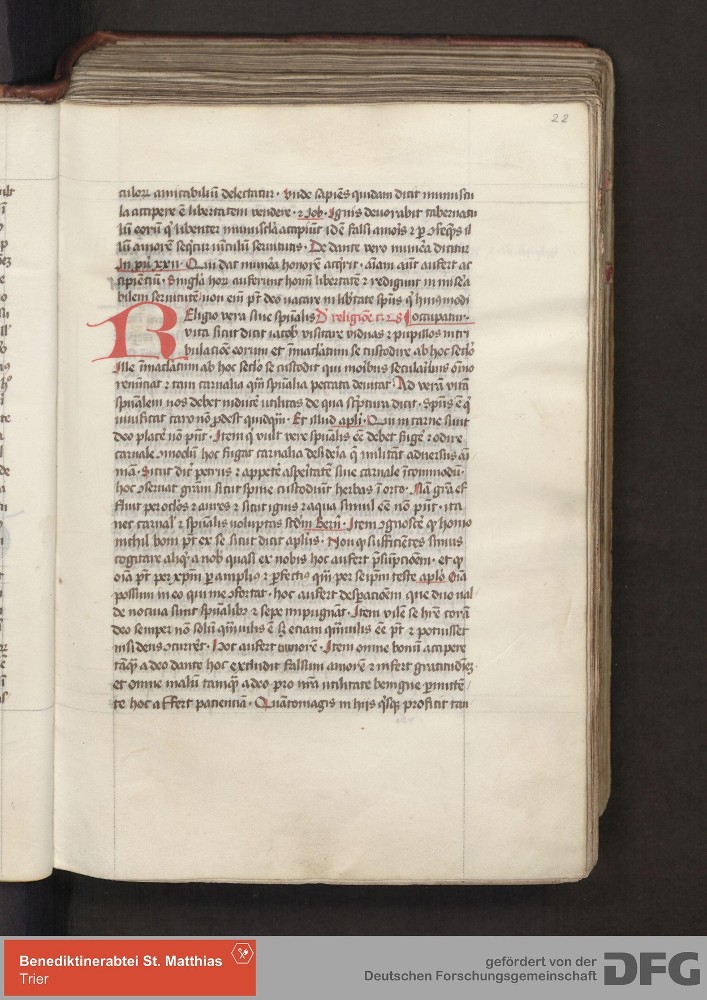 22
culorum amicabilium delectatur. Vnde sapiens quidam dicit munuscu
la accipere est libertatem vendere. et Job. Ignis deuorabit tabernacu
lum eorum qui libenter munuscula accipiunt
lum amorem sequitur vinculum seruitutis. De dante vero munera dicitur
In xxii. Qui dat munera honorem acquirit. animam autem aufert ac
cipientium. Singula horum auferunt homini libertatem et redigunt in misera
bilem seruitutem non enim potest deo vacare in libertate spiritus qui huiusmodi
Religio vera siue spiritualis De religione occupatur.
vita sicut dicit iacob visitare viduas et pupillos in tri
bulacione eorum et inmaculatum se custodire ab hoc seculo
Ille inmaculatum ab hoc seculo se custodit qui moribus secularibus omnino
renunciat et tam carnalia quam spiritualia peccata deuitat. Ad veram vitam
spiritualem nos debet inducere vtilitas de qua scriptura dicit. Spiritus est qui
viuificat caro non prodest quidquam. Et illud apostoli. Qui in carne sunt
deo placere non possunt. Item qui vult vere spiritualis esse debet fugere et odire
carnale commodum hoc fugat carnalia desideria que militant aduersus ani
mam. Sicut dicit petrus et appetere asperitatem siue carnale incommodum.
hoc conseruat gratiam sicut spine custodiunt herbas in orto. Nam gratia ef
fluit per oculos et aures et sicut ignis et aqua simul esse non possunt. ita
nec carnalis et spiritualis voluptas secundum Bern. Item cognoscere quod homo
nichil boni potest ex se sicut dicit apostolus. Non quod sufficientes simus
cogitare aliquid a nobis quasi ex nobis hoc aufert presumpcionem. et quod
omnia potest per christum per amplius et perfectius quam per seipsum teste apostolo Omnia
possum in eo qui me confortat. hoc aufert desperacionem que duo val
de nociua sunt spiritualibus et sepe impugnant. Item vilem se habere coram
deo semper non solum quam vilis est sed etiam quam vilis esse potest et potuisset
nisi deus occurreret. Hoc aufert timorem. Item omne bonum accipere
tamquam a deo dante hoc excludit falsum amorem et infert gratitudinem
et omne malum tamquam a deo pro nostra vtilitate benigne permitten
te hoc affert pacienciam. Quanto magis in hiis quisque proficit tan
Benediktinerabtei St. Matthias
Trier
gefördert von der
Deutschen Forschungsgemeinschaft
DFG